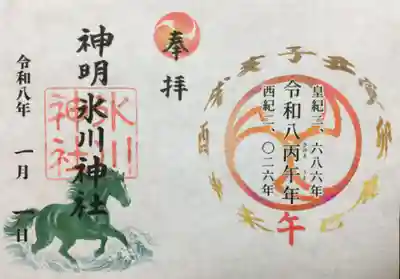 皇紀二、六八六年
令和八丙午年
西紀二、〇二六年
子丑寅卯辰巳午未申酉戌亥
奉拝
神明氷川神社
氷川神社
令和八年 一月 一日